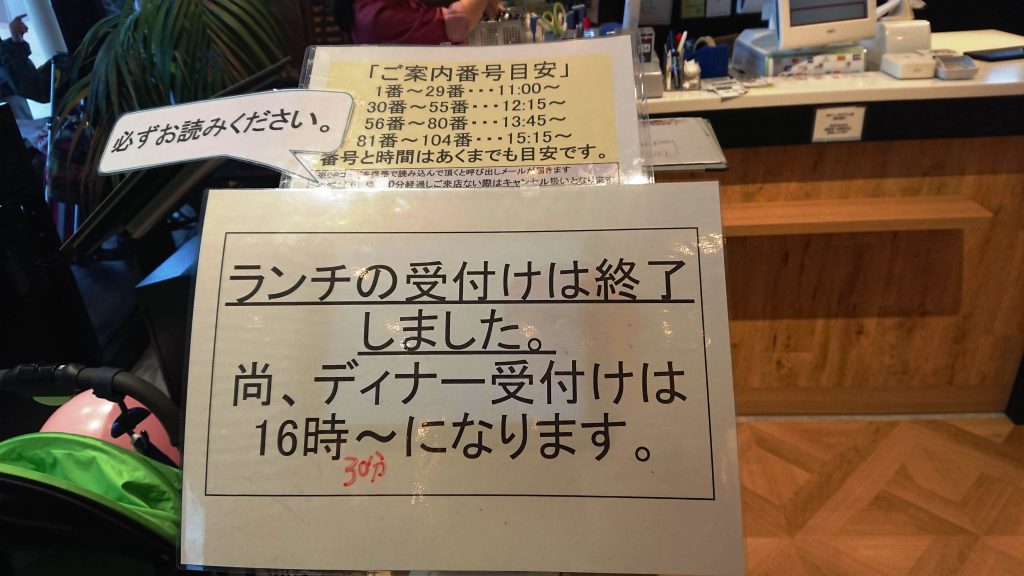 「ご案内番号目安」
1番～29番・・・11:00～
30番～55番・・・12:15～
56番～80番・・・13:45～
81番～104番・・・15:15～
番号と時間はあくまでも目安です。
必ずお読みください。
携帯で読み込んで頂くと呼び出しメールが届きます
0分経過しご来店ない際はキャンセル扱いとなり
ランチの受付けは終了
しました。
尚、ディナー受付けは
16時～になります。
30分